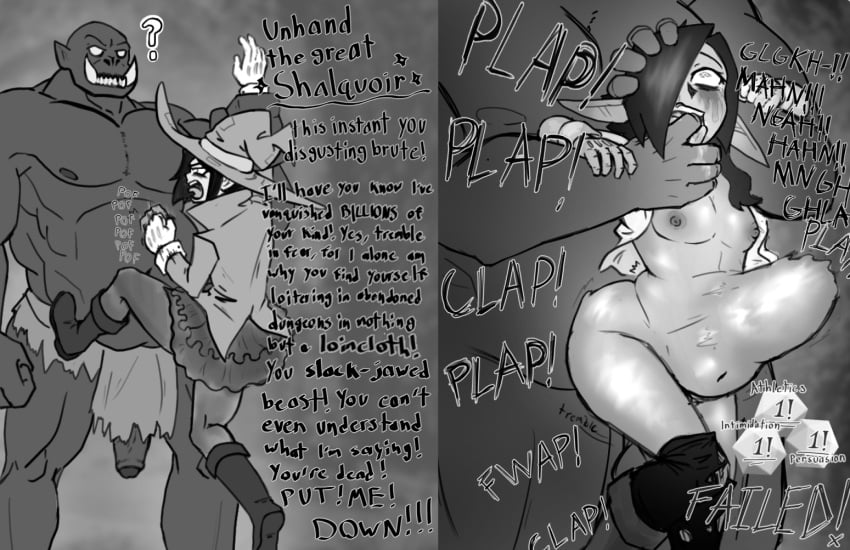 ?
Unhand
the great
Shalquoir
This instant you
disgusting brute!
I'll have you know I've
vanquished BILLIONS of
your kind! Yes, tremble
in fear, for I alone am
why you find yourself
loitering in abandoned
dungeons in nothing
but a loincloth!
You slack-jawed
beast! You can't
even understand
what I'm saying!
You're dead!
PUT! ME!
DOWN!!!
POF
POF
POF
POF
POF
POF
PLAP!
PLAP!
CLAP!
PLAP!
FWAP!
CLAP!
tremble
GLGKH-!!
MAHM!!!
NGAH!!
HAHM!!
MNGH
GHLA
PLA
Athletics
1!
Intimidation
1!
1!
Persuasion
FAILED!